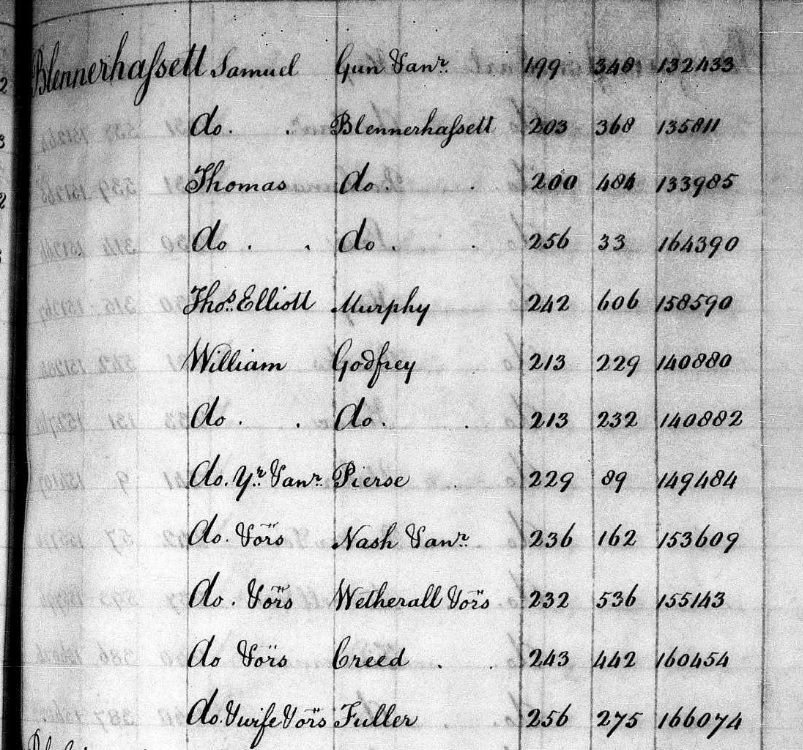 Blennerhassett Samuel Gun & anr. 199 348 132433
do. . Blennerhassett 203 368 135811
Thomas do . 200 484 133985
do . . do . . 256 33 164390
Thos. Elliott Murphy 242 606 158590
William Godfrey 213 229 140880
do . . do. . 213 232 140882
do. Yr. & anr. Pierse . 229 89 149484
do. & ors Nash & anr. 236 162 153609
do. & ors Wetherall & ors. 232 536 155143
do & ors Creed . . 243 442 160454
do. & wife & ors Fuller 256 275 166074